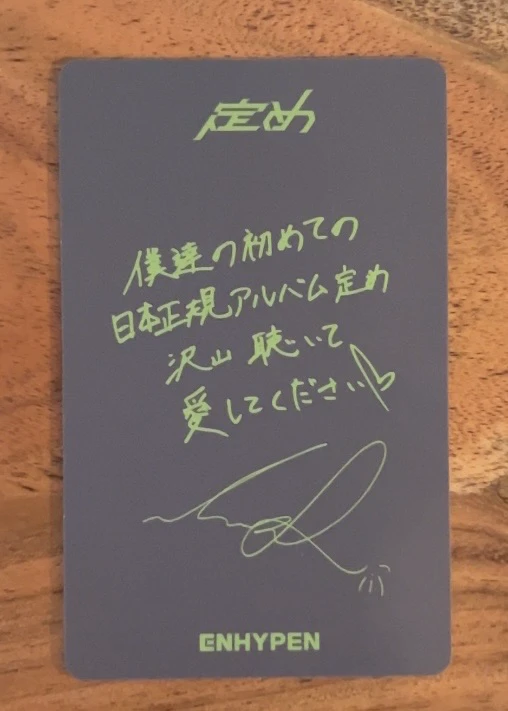 定め
僕達の初めての
日本正規アルバム定め
沢山 聴いて
愛してください
ENHYPEN